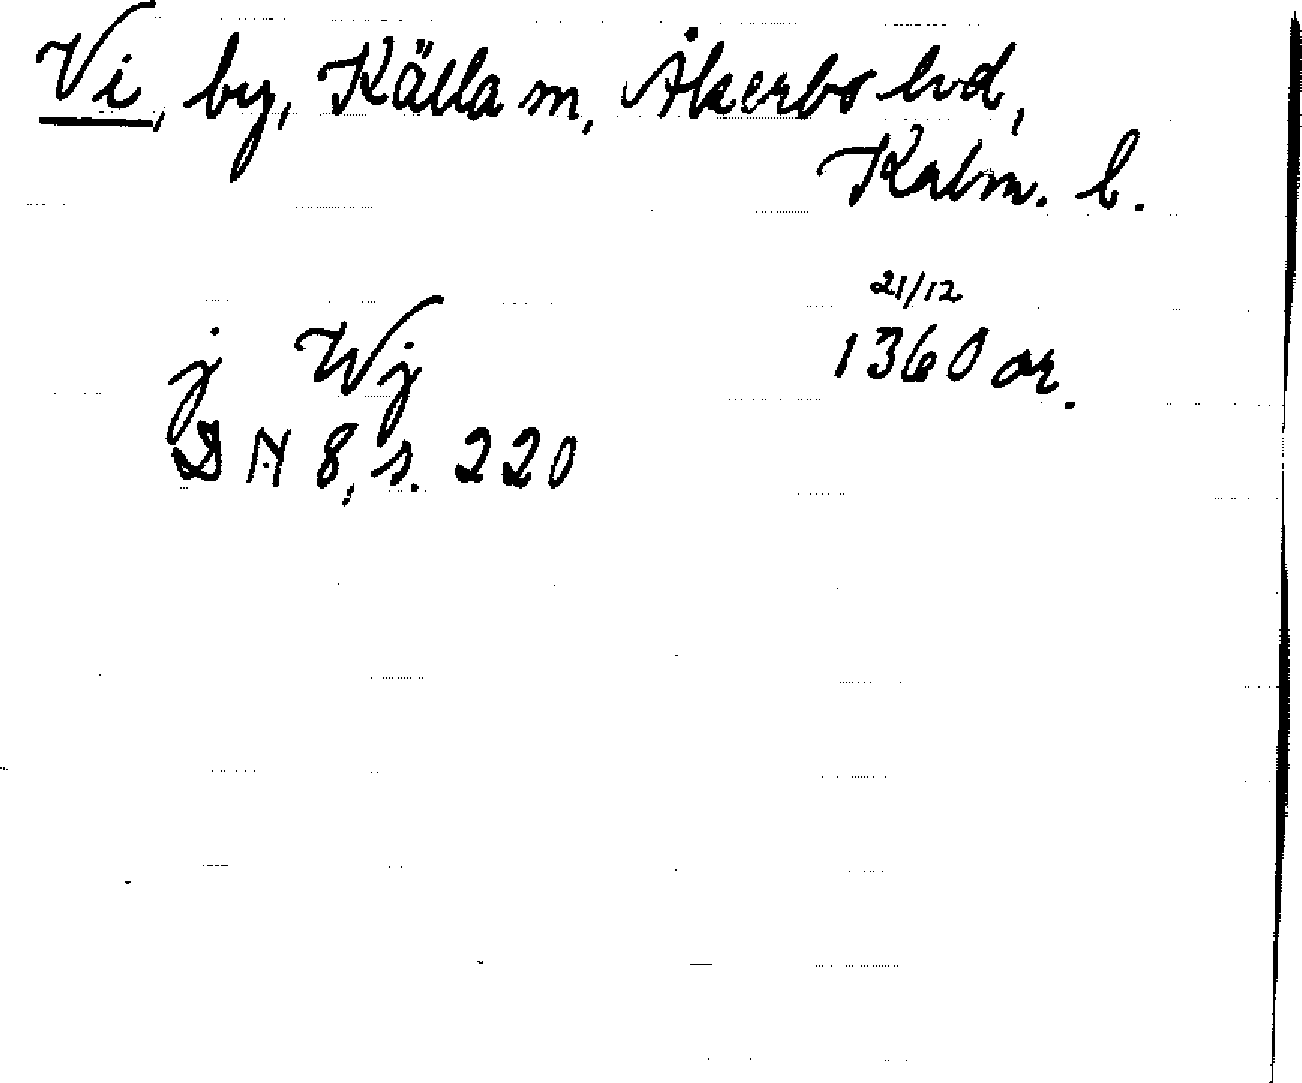 Vi, by, Källa sn, Åkerbo hd,
Kalm. l.
21/12
j Wj 1360 or.
DN 8, s. 220